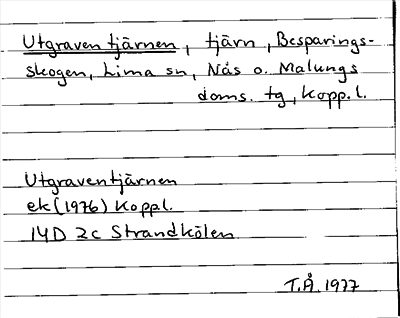 Utgraventjärnen, tjärn, Besparings-
skogen, Lima sn, Nås o. Malungs
doms. tg, Kopp. l.
Utgraventjärnen
ek (1976) Koppl.
14D 2c Strandkölen
T.Å. 1977